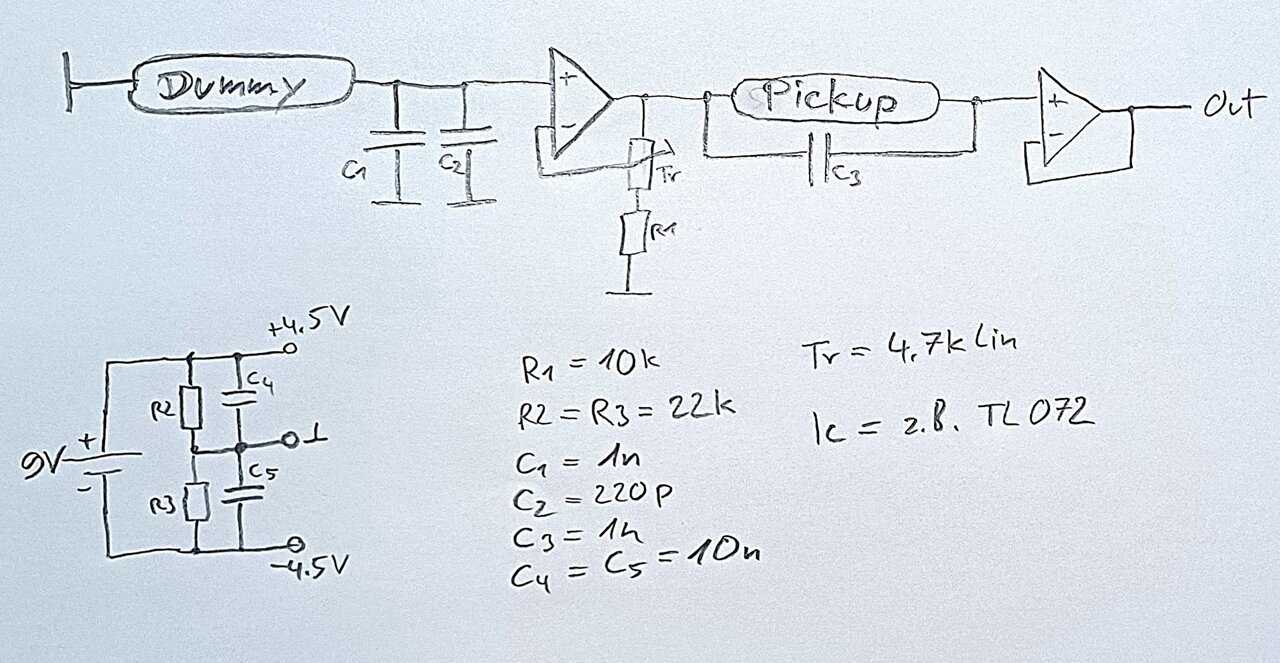 Dummy
+
-
C1
C2
Tr
R1
Pickup
C3
+
-
Out
+4.5V
R2
C4
9V
+
-
⊥
R3
C5
-4.5V
R1 = 10k
R2 = R3 = 22k
C1 = 1n
C2 = 220p
C3 = 1n
C4 = C5 = 10n
Tr = 4.7k Lin
Ic = z.B. TL072